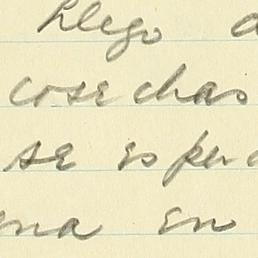 Llego a
cosechas
se esper
ena en